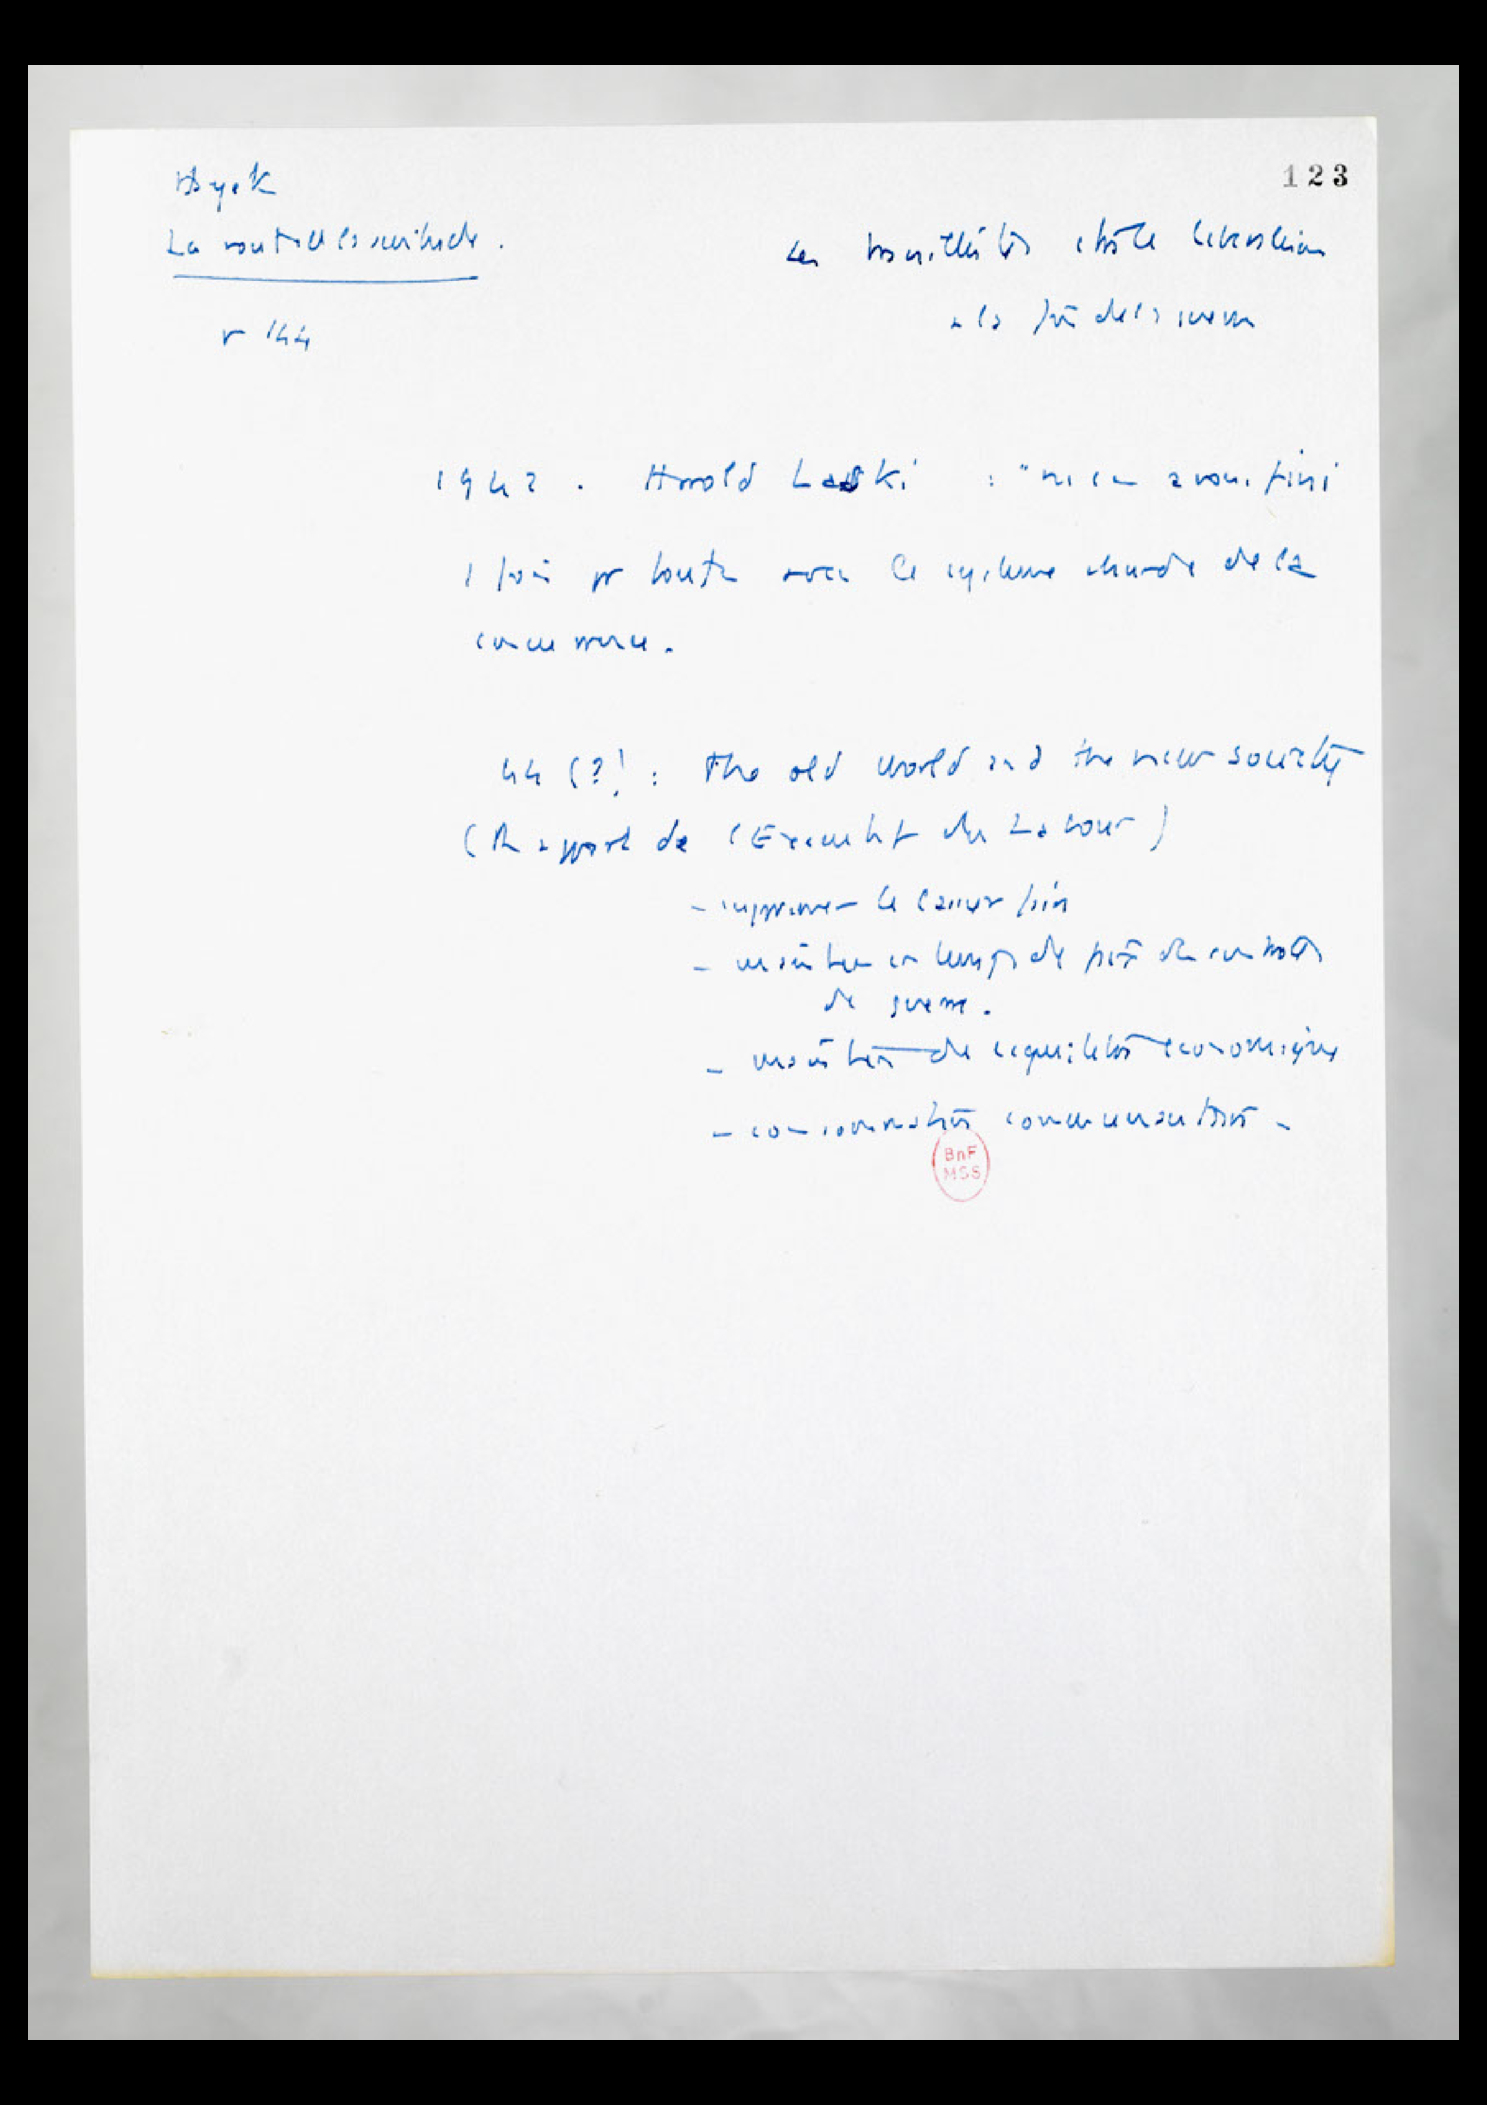 Hayek
123
La route de la servitude.
Les travaillistes et le
à la fin de la guerre
p 144
1942. Harold Laski : "nous en avons fini
1 fois pr toutes avec le système de la
concurrence.
44 (?) : The old world and the new society
(Rapport de l'Exécutif du Labour)
- supprimer le laisser faire
- maintien en temps de paix des contrôles
de guerre.
- maintien des équilibres économiques
- consommation communautaire -
BnF
MSS